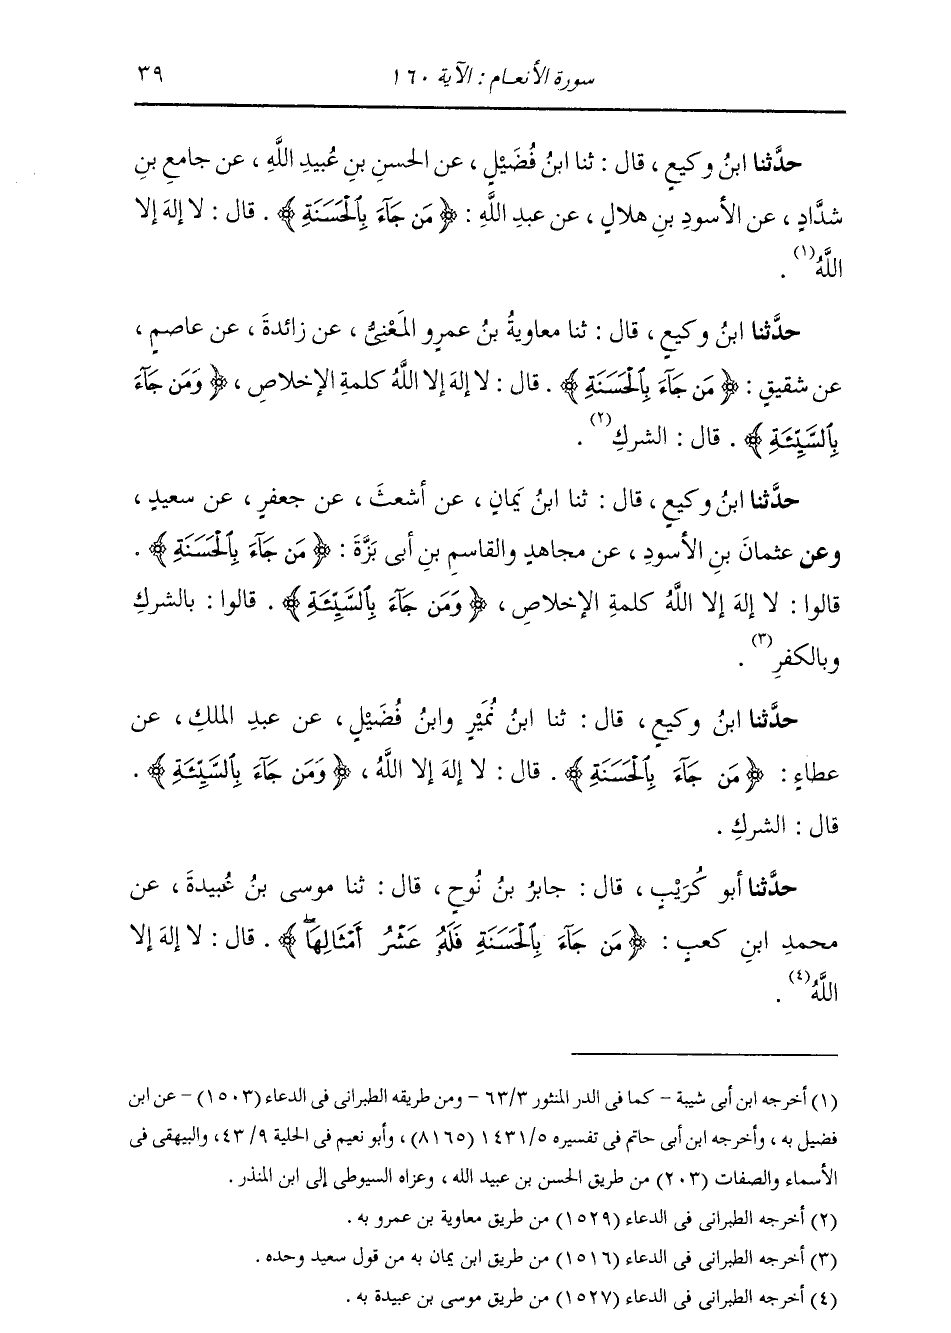 سورة الأنعام : الآية ١٦٠ ٣٩
حدَّثنا ابنُ وكيعٍ ، قال : ثنا ابنُ فُضَيْلٍ ، عن الحسنِ بنِ عُبيدِ اللَّهِ ، عن جامعِ بنِ
شدَّادٍ ، عن الأسودِ بنِ هلالٍ ، عن عبدِ اللَّهِ : ﴿ مَن جَآءَ بِٱلْحَسَنَةِ ﴾ . قال : لا إلهَ إلا
اللَّهُ(١) .
حدَّثنا ابنُ وكيعٍ ، قال : ثنا معاويةُ بنُ عمرٍو المَعْنِيُّ ، عن زائدةَ ، عن عاصمٍ ،
عن شقيقٍ : ﴿ مَن جَآءَ بِٱلْحَسَنَةِ ﴾ . قال : لا إلهَ إلا اللَّهُ كلمةِ الإخلاصِ ، ﴿ وَمَن جَآءَ
بِٱلسَّيِّئَةِ ﴾ . قال : الشركِ(٢) .
حدَّثنا ابنُ وكيعٍ ، قال : ثنا ابنُ يَمانٍ ، عن أشعثَ ، عن جعفرٍ ، عن سعيدٍ ،
وعن عثمانَ بنِ الأسودِ ، عن مجاهدٍ والقاسمِ بنِ أبى بَزَّةَ : ﴿ مَن جَآءَ بِٱلْحَسَنَةِ ﴾ .
قالوا : لا إلهَ إلا اللَّهُ كلمةِ الإخلاصِ ، ﴿ وَمَن جَآءَ بِٱلسَّيِّئَةِ ﴾ . قالوا : بالشركِ
وبالكفرِ(٣) .
حدَّثنا ابنُ وكيعٍ ، قال : ثنا ابنُ نُمَيْرٍ وابنُ فُضَيْلٍ ، عن عبدِ الملكِ ، عن
عطاءٍ : ﴿ مَن جَآءَ بِٱلْحَسَنَةِ ﴾ . قال : لا إلهَ إلا اللَّهُ ، ﴿ وَمَن جَآءَ بِٱلسَّيِّئَةِ ﴾ .
قال : الشركِ .
حدَّثنا أبو كُرَيْبٍ ، قال : جابرُ بنُ نُوحٍ ، قال : ثنا موسى بنُ عُبيدةَ ، عن
محمدِ ابنِ كعبٍ : ﴿ مَن جَآءَ بِٱلْحَسَنَةِ فَلَهُۥ عَشْرُ أَمْثَالِهَاۖ ﴾ . قال : لا إلهَ إلا
اللَّهُ(٤) .
(١) أخرجه ابن أبى شيبة - كما فى الدر المنثور ٦٣/٣ - ومن طريقه الطبرانى فى الدعاء (١٥٠٣) - عن ابن
فضيل به ، وأخرجه ابن أبى حاتم فى تفسيره ١٤٣١/٥ (٨١٦٥) ، وأبو نعيم فى الحلية ٩/ ٤٣، والبيهقى فى
الأسماء والصفات (٢٠٣) من طريق الحسن بن عبيد الله ، وعزاه السيوطى إلى ابن المنذر .
(٢) أخرجه الطبرانى فى الدعاء (١٥٢٩) من طريق معاوية بن عمرو به .
(٣) أخرجه الطبرانى فى الدعاء (١٥١٦) من طريق ابن يمان به من قول سعيد وحده .
(٤) أخرجه الطبرانى فى الدعاء (١٥٢٧) من طريق موسى بن عبيدة به .